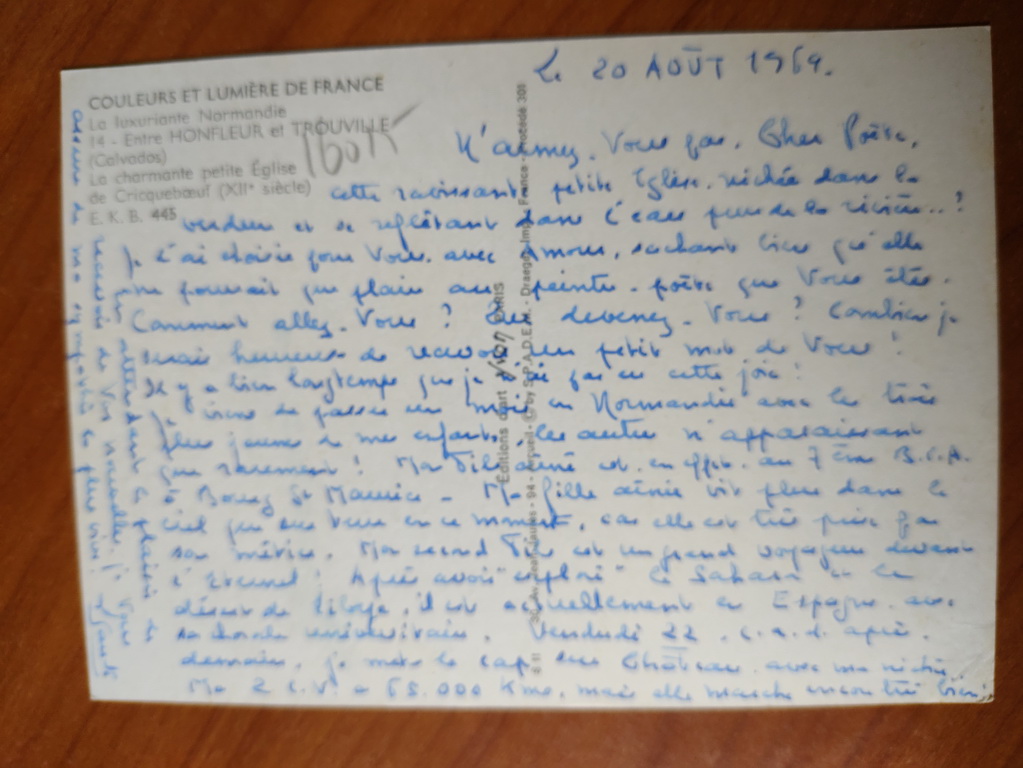 COULEURS ET LUMIÈRE DE FRANCE
La luxuriante Normandie
14 - Entre HONFLEUR et TROUVILLE
(Calvados)
La charmante petite Église
de Cricquebœuf (XIIe siècle)
E. K. B. 445
Le 20 AOÛT 1969.
N'aimez-Vous pas, Cher Poète,
cette ravissante petite Église, nichée dans la
verdure et se reflétant dans l'eau de la rivière..?
Je l'ai choisie pour Vous, avec Amour, sachant bien qu'elle
ne pourrait que plaire au peintre-poète que Vous êtes.
Comment allez-Vous? Que devenez-Vous? Combien je
serais heureuse de recevoir un petit mot de Vous!
Il y a bien longtemps que je n'ai pas eu cette joie!
Je viens de passer un mois en Normandie avec les trois
plus jeunes de mes enfants, les autres n'apparaissant
que rarement! Mon Fils aîné est en effet au 7ème B.C.A.
à Bourg St Maurice - Ma fille aînée vit plus dans le
ciel que sur terre en ce moment, car elle est très prise par
son métier. Mon second Fils est un grand voyageur devant
l'Eternel! Après avoir "exploré" le Sahara et le
désert de Libye, il est actuellement en Espagne avec
sa chorale universitaire. Vendredi 22, c.à.d. après-
demain, je mets le cap sur Château avec ma nichée..
Ma 2 C.V. a 65.000 Kms, mais elle marche encore très bien!
En attendant le plaisir de
recevoir de Vos nouvelles, je Vous
assure de ma sympathie la plus vive!
Editions d'art YVON PARIS